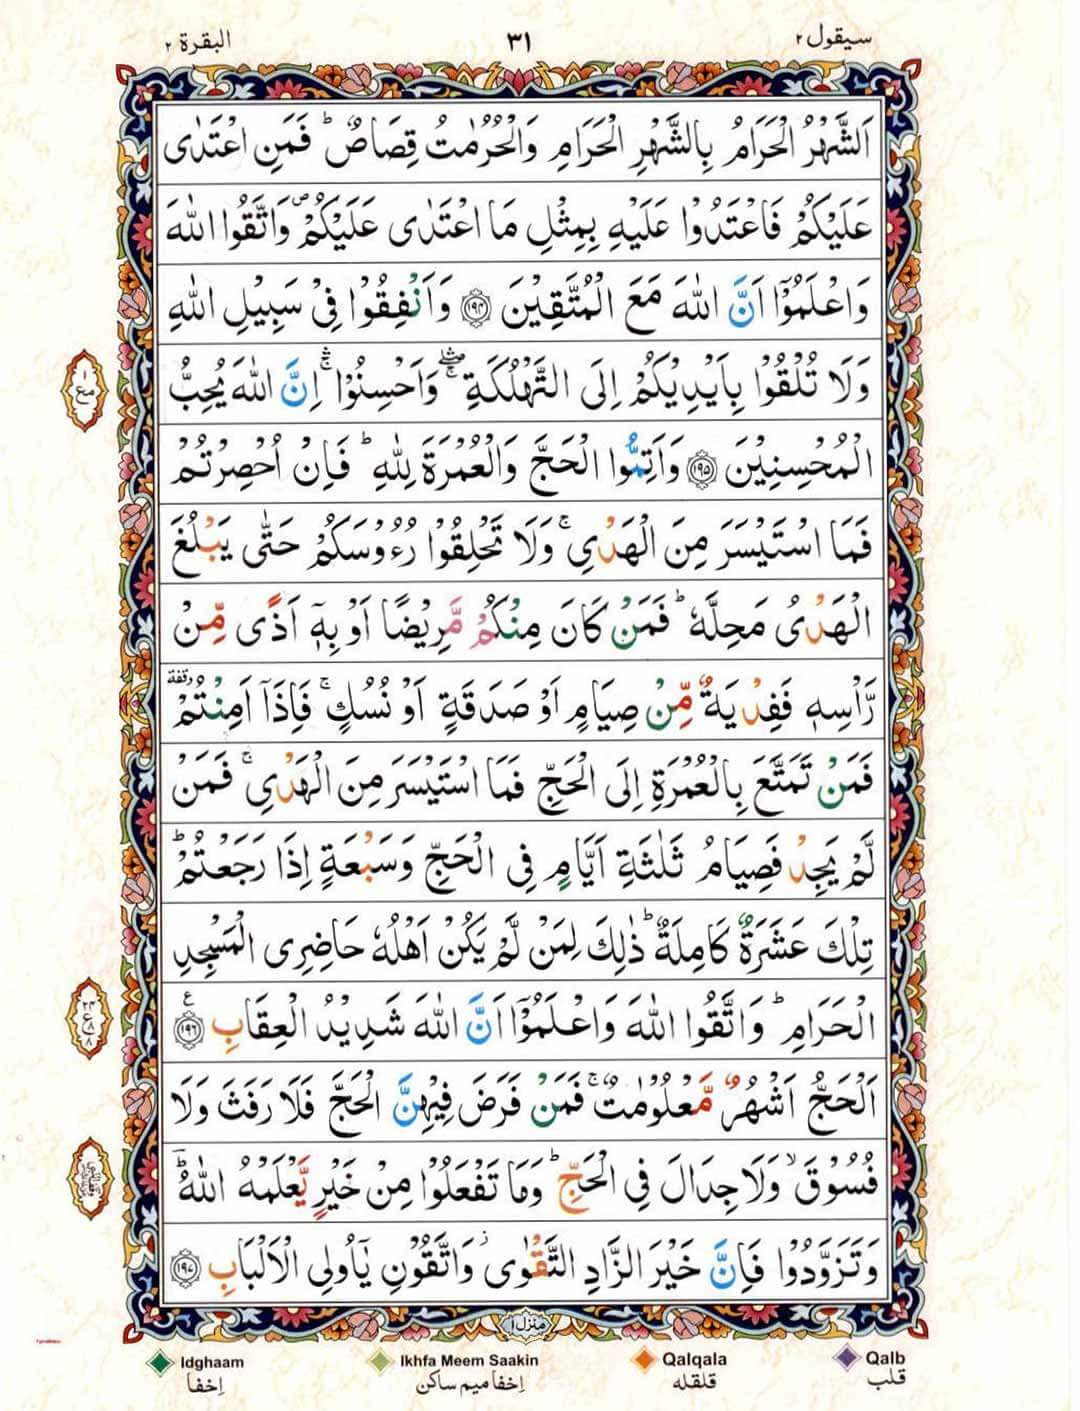 سیقول ۲
۳۱
البقرة ۲
اَلشَّهْرُ الْحَرَامُ بِالشَّهْرِ الْحَرَامِ وَالْحُرُمٰتُ قِصَاصٌ ؕ فَمَنِ اعْتَدٰى
عَلَيْكُمْ فَاعْتَدُوْا عَلَيْهِ بِمِثْلِ مَا اعْتَدٰى عَلَيْكُمْ ۪ وَاتَّقُوا اللّٰهَ
وَاعْلَمُوْۤا اَنَّ اللّٰهَ مَعَ الْمُتَّقِيْنَ ﴿۱۹۴﴾ وَاَنْفِقُوْا فِيْ سَبِيْلِ اللّٰهِ
وَلَا تُلْقُوْا بِاَيْدِيْكُمْ اِلَى التَّهْلُكَةِ ۛۖۚ وَاَحْسِنُوْا ۛۚ اِنَّ اللّٰهَ يُحِبُّ
مع
الْمُحْسِنِيْنَ ﴿۱۹۵﴾ وَاَتِمُّوا الْحَجَّ وَالْعُمْرَةَ لِلّٰهِ ؕ فَاِنْ اُحْصِرْتُمْ
فَمَا اسْتَيْسَرَ مِنَ الْهَدْيِ ۚ وَلَا تَحْلِقُوْا رُءُوْسَكُمْ حَتّٰى يَبْلُغَ
الْهَدْيُ مَحِلَّهٗ ؕ فَمَنْ كَانَ مِنْكُمْ مَّرِيْضًا اَوْ بِهٖۤ اَذًى مِّنْ
رَّاْسِهٖ فَفِدْيَةٌ مِّنْ صِيَامٍ اَوْ صَدَقَةٍ اَوْ نُسُكٍ ۚ فَاِذَاۤ اَمِنْتُمْ وقفة
فَمَنْ تَمَتَّعَ بِالْعُمْرَةِ اِلَى الْحَجِّ فَمَا اسْتَيْسَرَ مِنَ الْهَدْيِ ۚ فَمَنْ
لَّمْ يَجِدْ فَصِيَامُ ثَلٰثَةِ اَيَّامٍ فِي الْحَجِّ وَسَبْعَةٍ اِذَا رَجَعْتُمْ ؕ
تِلْكَ عَشَرَةٌ كَامِلَةٌ ؕ ذٰلِكَ لِمَنْ لَّمْ يَكُنْ اَهْلُهٗ حَاضِرِى الْمَسْجِدِ
الْحَرَامِ ؕ وَاتَّقُوا اللّٰهَ وَاعْلَمُوْۤا اَنَّ اللّٰهَ شَدِيْدُ الْعِقَابِ ﴿۱۹۶﴾ ع
اَلْحَجُّ اَشْهُرٌ مَّعْلُوْمٰتٌ ۚ فَمَنْ فَرَضَ فِيْهِنَّ الْحَجَّ فَلَا رَفَثَ وَلَا
فُسُوْقَ ۙ وَلَا جِدَالَ فِي الْحَجِّ ؕ وَمَا تَفْعَلُوْا مِنْ خَيْرٍ يَّعْلَمْهُ اللّٰهُ ؕ
وَتَزَوَّدُوْا فَاِنَّ خَيْرَ الزَّادِ التَّقْوٰى ؗ وَاتَّقُوْنِ يٰۤاُولِى الْاَلْبَابِ ﴿۱۹۷﴾
منزل ۱
Idghaam
اِخفا
Ikhfa Meem Saakin
اِخفا میم ساکن
Qalqala
قلقله
Qalb
قلب